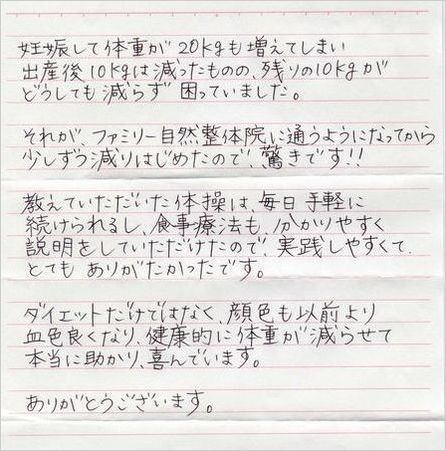 妊娠して体重が20kgも増えてしまい
出産後10kgは減ったものの、残りの10kgが
どうしても減らず困っていました。
それが、ファミリー自然整体院に通うようになってから
少しずつ減りはじめたので、驚きです!!
教えていただいた体操は、毎日手軽に
続けられるし、食事療法も、分かりやすく
説明をしていただけたので、実践しやすくて、
とてもありがたかったです。
ダイエットだけではなく、顔色も以前より
血色良くなり、健康的に体重が減らせて
本当に助かり、喜んでいます。
ありがとうございます。